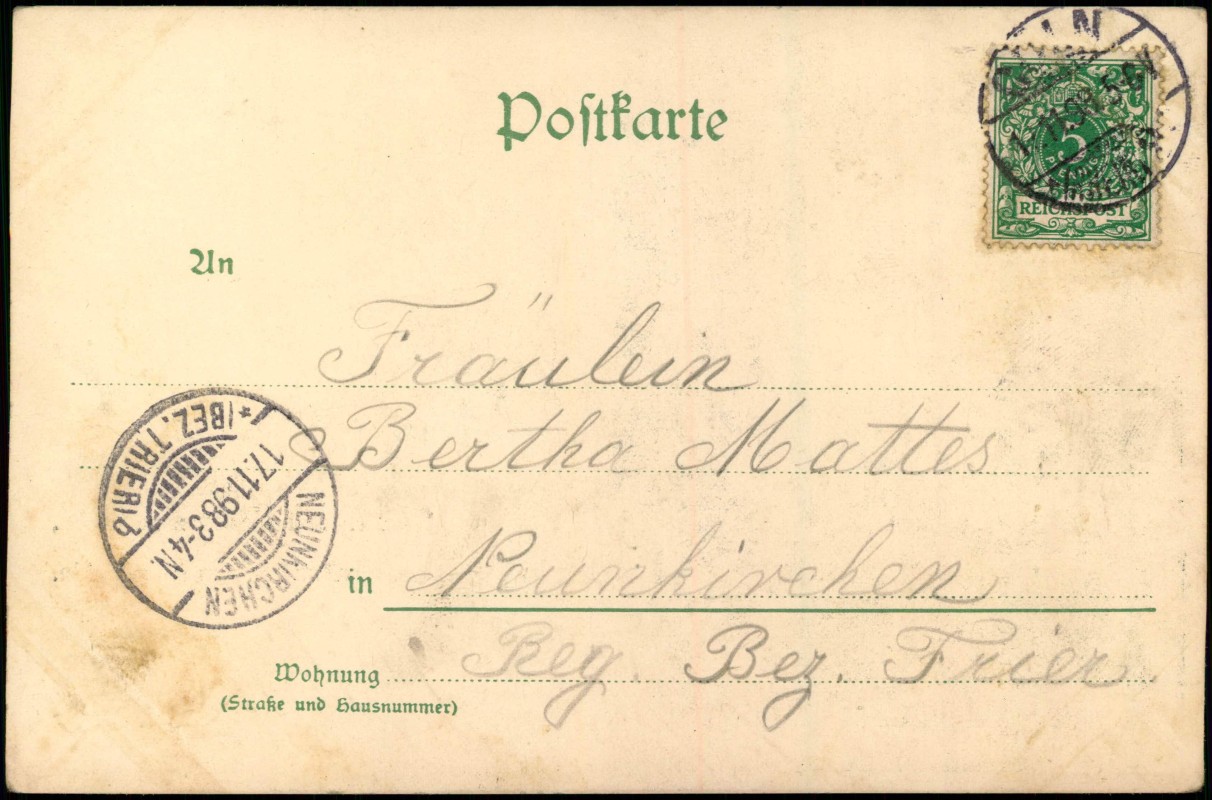 Postkarte
5
REICHSPOST
An
Fräulein
Bertha Mattes
in Neunkirchen
Wohnung Reg. Bez. Trier.
(Straße und Hausnummer)
NEUNKIRCHEN
17.11.98 3-4 N.
* (BEZ. TRIER) b